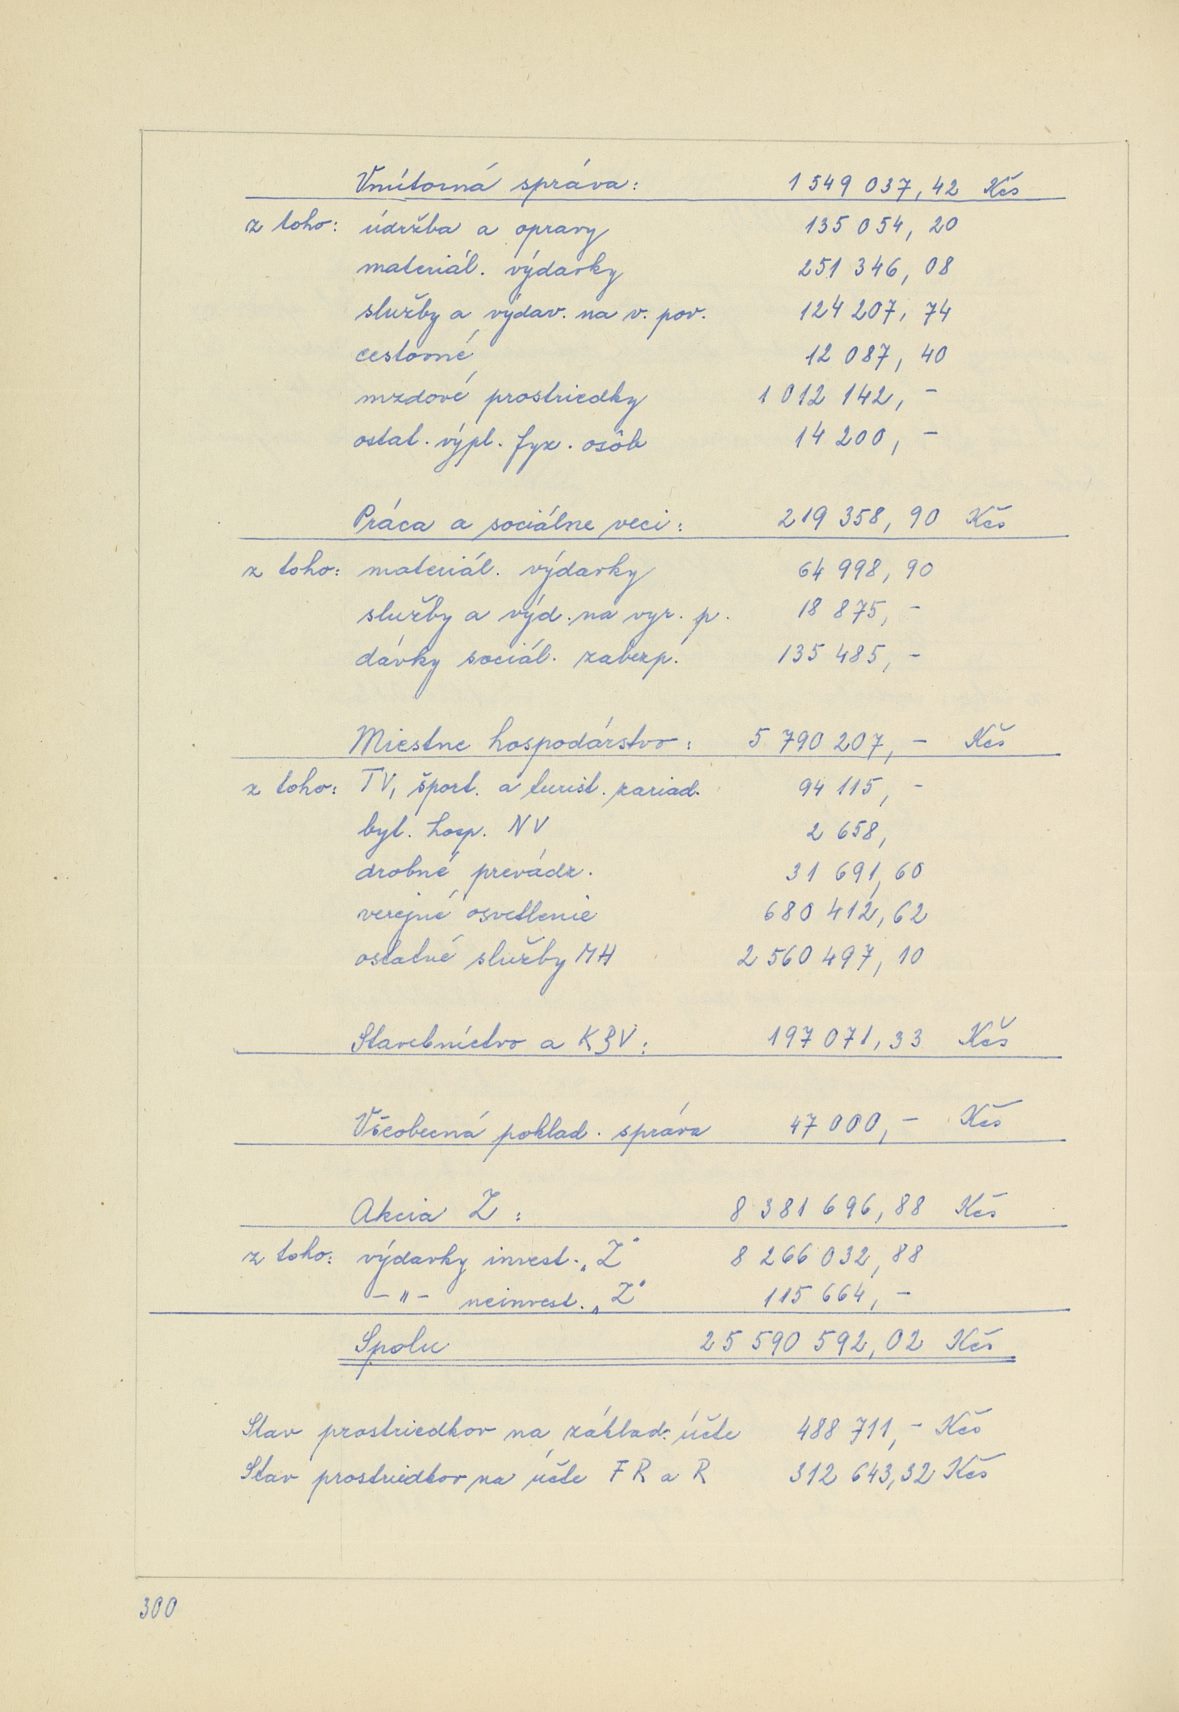 Vnútorná správa: 1 549 037,42 Kčs
z toho: údržba a opravy 135 054,20
materiál. výdavky 251 346,08
služby a výdav. na v. pov. 124 207,74
cestovné 12 087,40
mzdové prostriedky 1 012 142,-
ostat. výpl. fyz. osôb 14 200,-
Práca a sociálne veci: 219 358,90 Kčs
z toho: materiál. výdavky 64 998,90
služby a výd. na vyr. p. 18 875,-
dávky sociál. zabezp. 135 485,-
Miestne hospodárstvo: 5 790 207,- Kčs
z toho: TV, šport. a turist. zariad. 94 115,-
byt. hosp. NV 2 658,
drobné prevádz. 31 691,60
verejné osvetlenie 680 412,62
ostatné služby MH 2 560 497,10
Stavebníctvo a KBV: 197 071,33 Kčs
Všeobecná poklad. správa 47 000,- Kčs
Akcia Z: 8 381 696,88 Kčs
z toho: výdavky invest. „Z" 8 266 032,88
-"- neinvest. „Z" 115 664,-
Spolu 25 590 592,02 Kčs
Stav prostriedkov na základ. účte 488 711,- Kčs
Stav prostriedkov na účte FR a R 312 643,32 Kčs
300